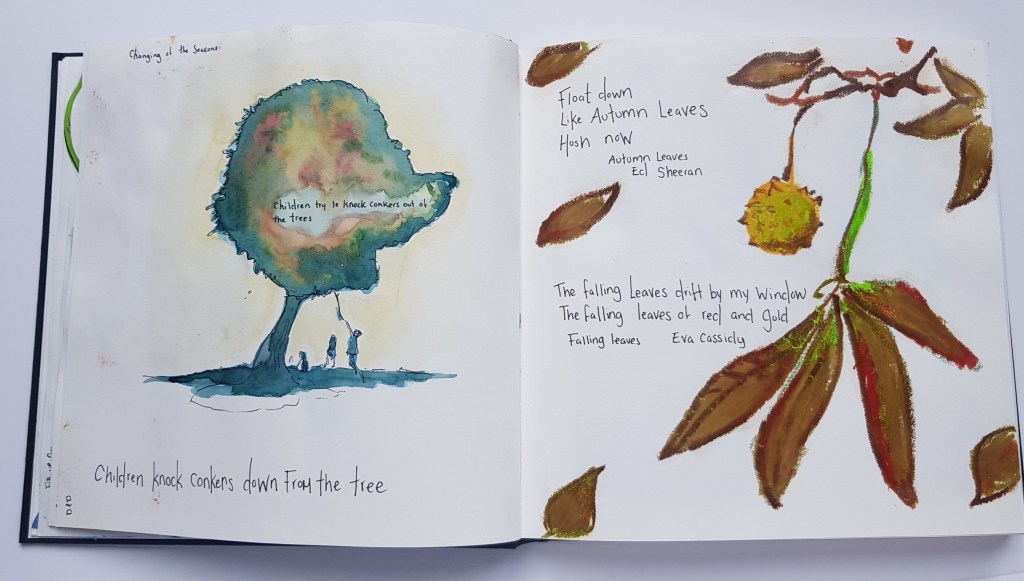 Changing of the Seasons.
Children try to knock conkers out of
the trees
Children knock conkers down from the tree
Float down
Like Autumn Leaves
Hush now
Autumn Leaves
Ed Sheeran
The falling Leaves drift by my window
The falling leaves of red and gold
Falling leaves Eva Cassidy
D&D